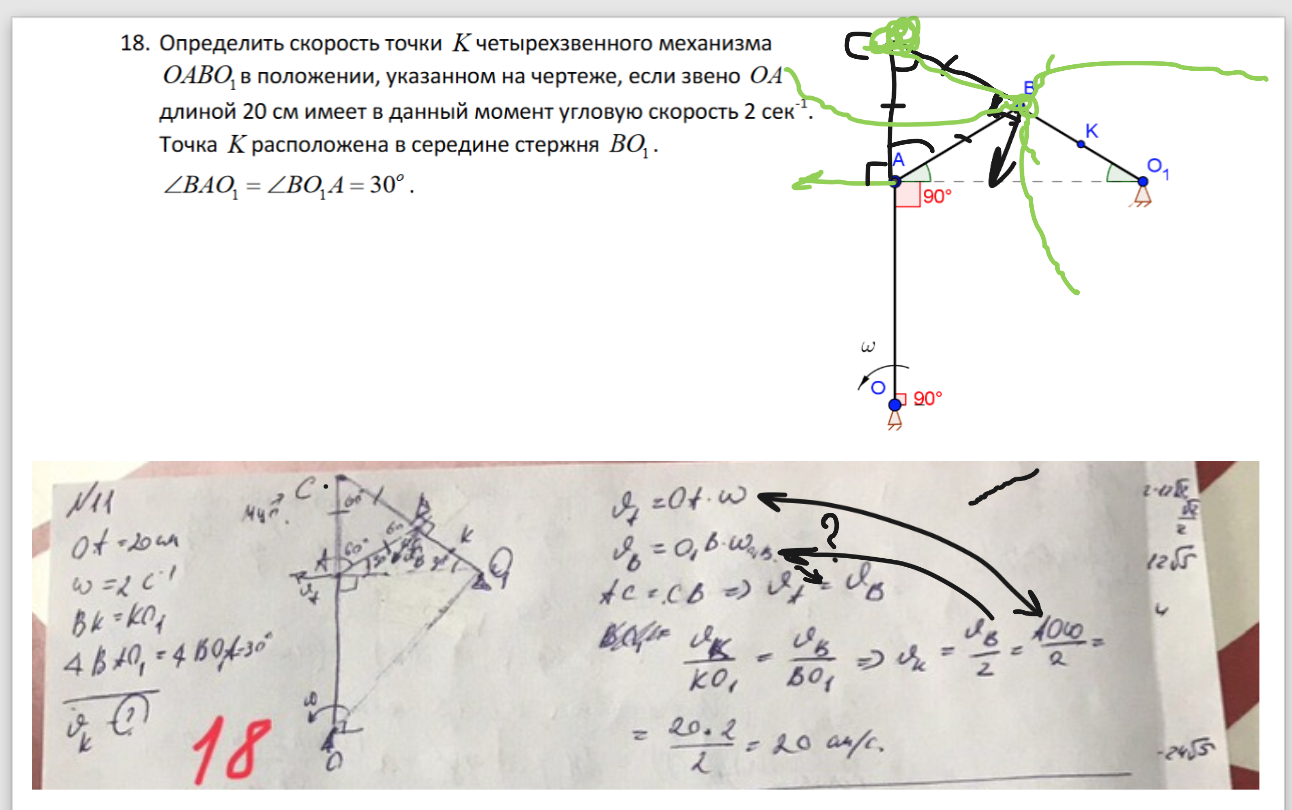 18. Определить скорость точки K четырехзвенного механизма
OABO₁ в положении, указанном на чертеже, если звено OA
длиной 20 см имеет в данный момент угловую скорость 2 сек⁻¹.
Точка K расположена в середине стержня BO₁.
∠BAO₁ = ∠BO₁A = 30°.
B
K
A
O₁
90°
ω
O
90°
N11
OA = 20 см
ω = 2 c⁻¹
BK = KO₁
∢BAO₁ = ∢BO₁A = 30°
18
C
60°
B
60°
K
A
60°
ω
O
𝜗A = OA · ω
?
AC = CB => 𝜗A = 𝜗B
𝜗K / KO₁ = 𝜗B / BO₁ => 𝜗K = 𝜗B / 2 = AOω / 2 =
= 20·2 / 2 = 20 см/с.
12√5
4
-24√5